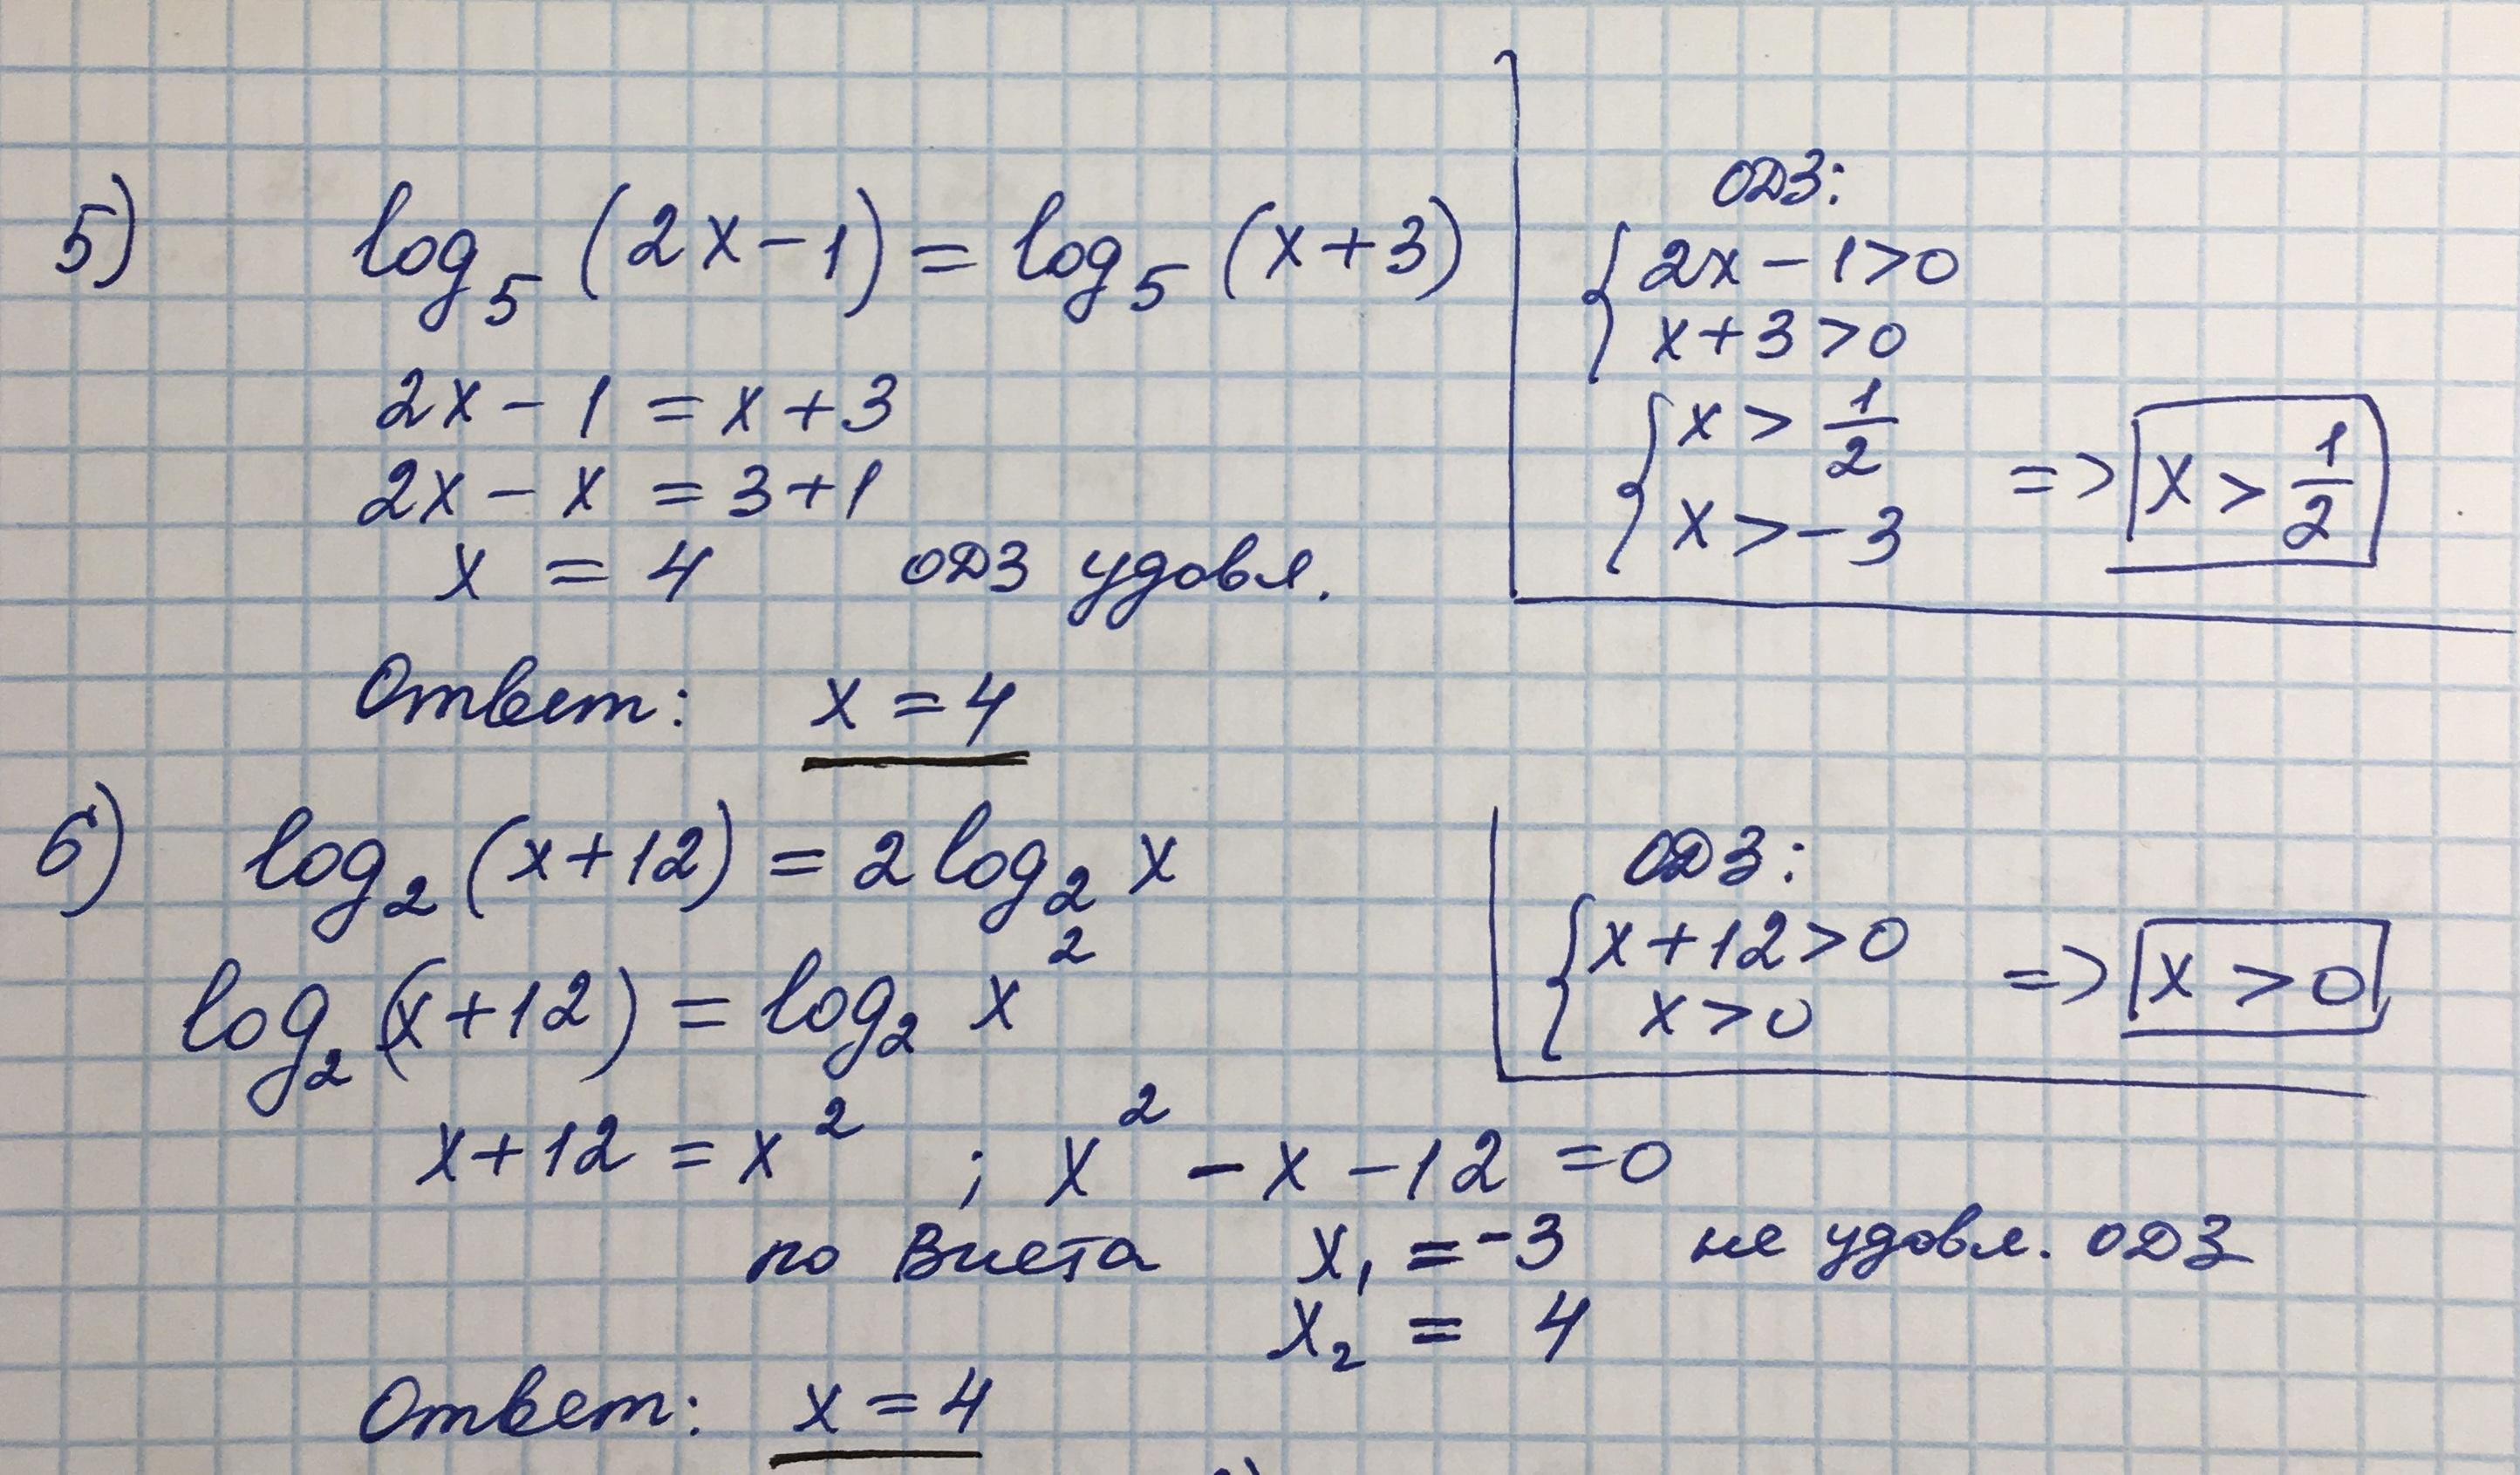 5) log₅ (2x-1) = log₅ (x+3)
2x - 1 = x + 3
2x - x = 3+1
x = 4 ОДЗ удовл.
Ответ: x = 4
ОДЗ:
{ 2x - 1>0
x+3>0
{ x > 1/2
x > -3
=> x > 1/2
6) log₂ (x+12) = 2 log₂ x
log₂ (x+12) = log₂ x²
ОДЗ:
{ x+12>0
x>0
=> x > 0
x+12 = x² ; x² - x - 12 = 0
по Виета x₁ = -3 не удовл. ОДЗ
x₂ = 4
Ответ: x = 4